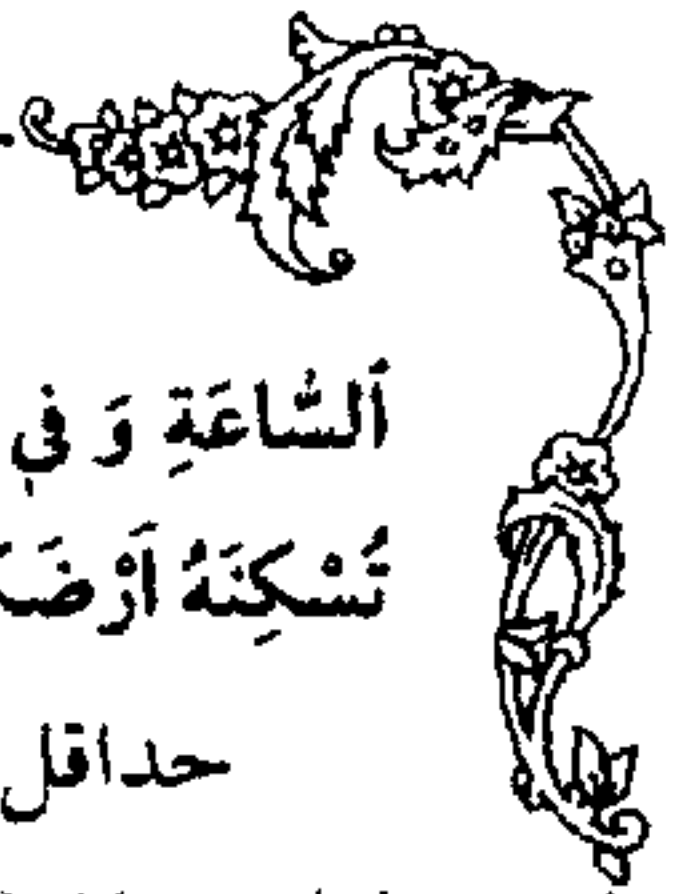 اَلسّٰاعَةِ وَ فِي
تُسْكِنَهُ اَرْضَ
حداقل